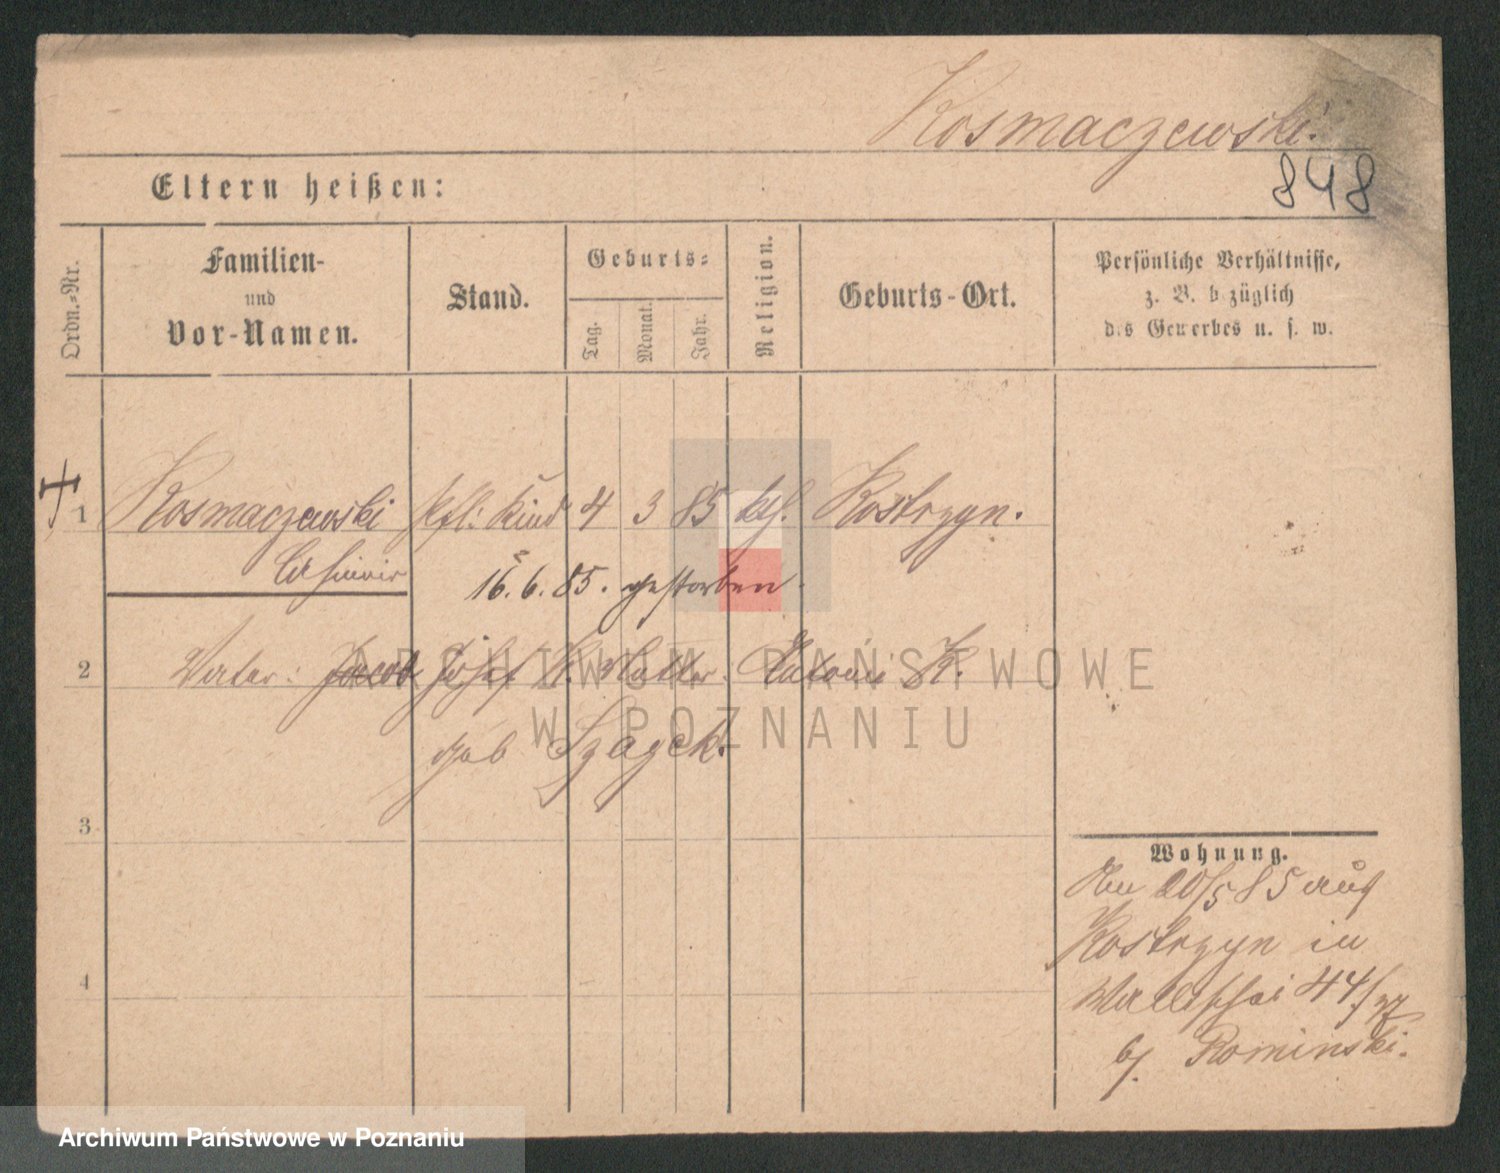 Kosmaczewski.
848
Eltern heißen:
Ordn.-Nr.
Familien-
und
Vor-Namen.
Stand.
Geburts-
Tag.
Monat.
Jahr.
Religion.
Geburts-Ort.
Persönliche Verhältnisse,
z. B. bezüglich
des Gewerbes u. s. w.
1 Kosmaczewski Pfl. Kind 4 3 85 kth. Kostrzyn.
Casimir
16. 6. 85. gestorben.
2 Vater: Jacob Josef K. Mutter: Antonie K.
geb Szagek.
3
4
Wohnung.
Am 20/5 85 aus
Kostrzyn in
Wallischei 44/
b/. Rominski.
ARCHIWUM PAŃSTWOWE
W POZNANIU
Archiwum Państwowe w Poznaniu